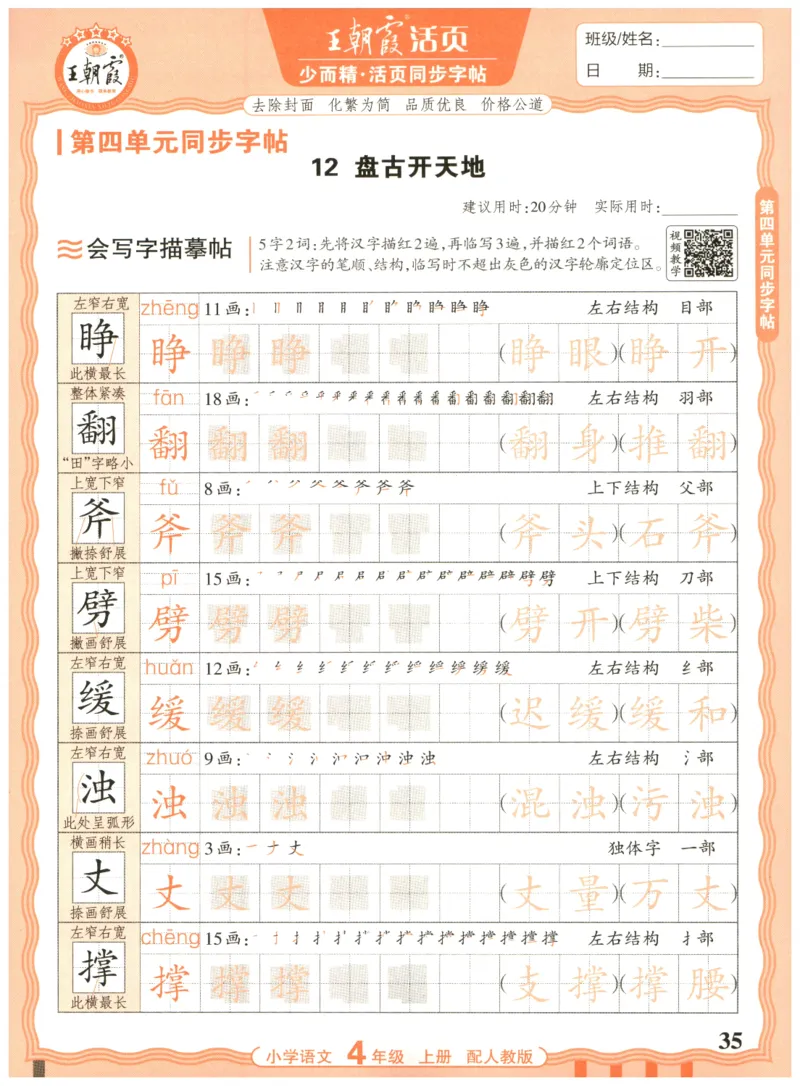 王朝霞
王朝霞活页
少而精·活页同步字帖
班级/姓名:
日 期:
去除封面 化繁为简 品质优良 价格公道
第四单元同步字帖
12 盘古开天地
建议用时:20分钟 实际用时:
会写字描摹帖
5字2词:先将汉字描红2遍,再临写3遍,并描红2个词语。
注意汉字的笔顺、结构,临写时不超出灰色的汉字轮廓定位区。
视频教学
第四单元同步字帖
左窄右宽
睁
此横最长
zhēng 11画: 左右结构 目部
睁 睁 睁 (睁眼)(睁开)
整体紧凑
翻
“田”字略小
fān 18画: 左右结构 羽部
翻 翻 翻 (翻身)(推翻)
上宽下窄
斧
撇捺舒展
fǔ 8画: 上下结构 父部
斧 斧 斧 (斧头)(石斧)
上宽下窄
劈
撇画舒展
pī 15画: 上下结构 刀部
劈 劈 劈 (劈开)(劈柴)
左窄右宽
缓
捺画舒展
huǎn 12画: 左右结构 纟部
缓 缓 缓 (迟缓)(缓和)
左窄右宽
浊
此处呈弧形
zhuó 9画: 左右结构 氵部
浊 浊 浊 (混浊)(污浊)
横画稍长
丈
捺画舒展
zhàng 3画:一ナ丈 独体字 一部
丈 丈 丈 (丈量)(万丈)
左窄右宽
撑
此横最长
chēng 15画: 左右结构 扌部
撑 撑 撑 (支撑)(撑腰)
35
小学语文 4年级 上册 配人教版